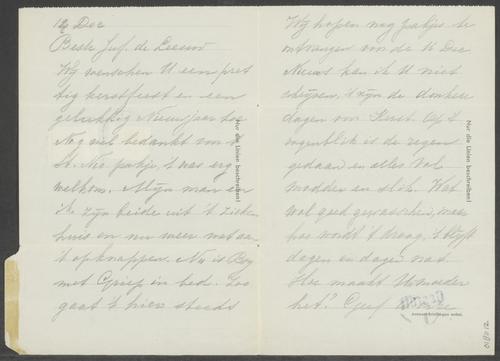 12 Dec
Beste Juf. de Leeuw
Wij wenschen U een pret
tig kerstfeest en een
gelukkig Nieuwjaar toe
Nog wel bedankt voor 't
St. Nic pakje, 't was erg
welkom. Mijn man en
ik zijn beide uit 't zieken
huis en nu weer met aan
't opknappen. Nu is
met Griep in bed. Zoo
gaat 't hier steeds
Nur die Linien beschreiben!
Wij hopen nog pakje te
ontvangen van de U Dec
Nieuws kan ik U niet
schrijven, 't zijn de donkere
dagen voor Kerst. Op 't
oogenblik is de regen
gedaan en alles vol
modder en slik. Wat
wel goed gewasschen, maar
hoe wordt 't droog, 't blijft
dagen en dagen nat.
Hoe maakt Uw moeder
het?
Nur die Linien beschreiben!